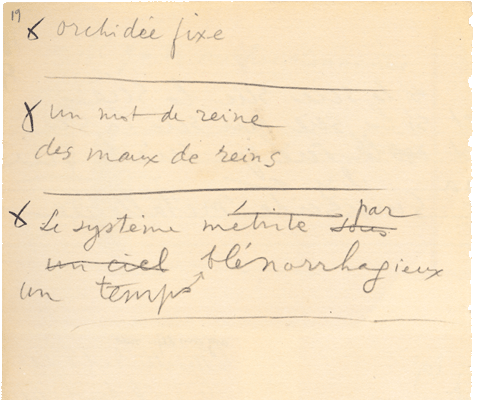 19
x orchidée fixe
x un mot de reine
des maux de reins
x Le système métrite par
sous
un ciel blénorrhagieux
un temps